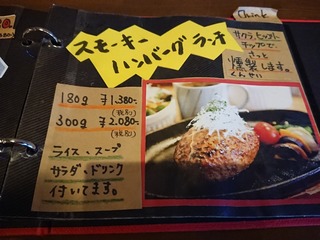 スモーキー
ハンバーグランチ
サクラ、ヒッコリー
チップで、
さっと
燻製します。
くんせい
180g ¥1,380-
(税別)
300g ¥2,080-
(税別)
ライス、スープ
サラダ・ドリンク
付いてます。